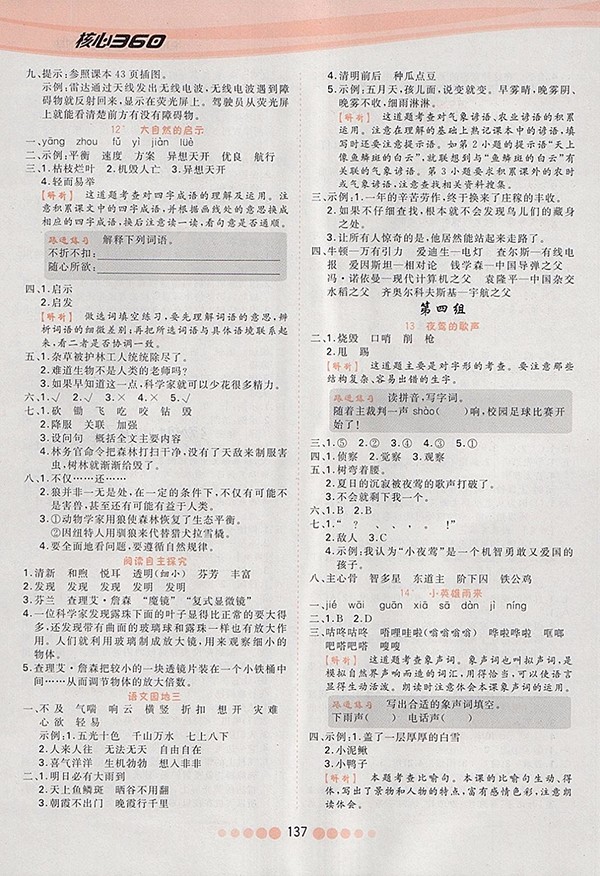 核心360
九、提示:参照课本43页插图。
示例:雷达通过天线发出无线电波,无线电波遇到障
碍物就反射回来,显示在荧光屏上。驾驶员从荧光屏
上就能看清楚前方有没有障碍物。
12* 大自然的启示
一、yāng zhou fǔ yì jiàn luè
二、示例:平衡 速度 方案 异想天开 优良 航行
三、1.枯枝烂叶 2.机毁人亡 3.异想天开
4.轻而易举
【解析】 这道题考查对四字成语的理解及运用。注
意积累课文中的四字成语,并根据画线处的意思换成
相应的四字成语,换后注意读一读,看句意是否通顺。
跟进练习 解释下列词语。
不折不扣:
随心所欲:
四、1.启示
2.启发
【解析】 做选词填空练习,要先理解词语的意思,辨
析词语的细微差别;再把所选词语与具体语境联系起
来,看二者是否协调一致。
五、1.杂草被护林工人统统除尽了。
2.难道生物不是人类的好老师吗?
3.如果早知道这一点,科学家就可以少花很多精力。
六、1.√ 2.√ 3.× 4.√
七、1.砍 锄 飞 吃 咬 钻 毁
2.降服 关联 加强
3.设问句 概括全文主要内容
4.林务官命令把森林打扫干净,没有了天敌来制服害
虫,树林就渐渐地被毁了。
八、1.不仅……还……
2.狼并非一无是处,在一定的条件下,不仅有可能不
是害兽,甚至还有可能有益于人类。
3.①动物学家用狼使森林恢复了生态平衡。
②因纽特人用驯狼来代替猎犬拉雪橇。
4.要全面地看问题,要遵循自然规律。
阅读自主探究
1.清新 和煦 悦耳 透明(细小) 芬芳 丰富
2.发现 发现 发明 发明 发现
3.芬兰 查理艾·詹森 “魔镜” “复式显微镜”
4.一位科学家发现露珠下面的叶子显得比正常的要大得
多,还发现有曲面的玻璃球和露珠一样也有放大作
用。人们就利用玻璃制成放大镜,用来观察细小的
物体。
5.查理艾·詹森把较小的一块透镜片安装在一个小铁桶中
间……从而调节物体的放大倍数。
语文园地三
一、不及 气喘 响云 横竖 折扣 想开 灾难
心欲 轻易
示例:1.五光十色 千山万水 七上八下
2.人来人往 无法无天 自由自在
3.喜气洋洋 生机勃勃 想入非非
二、1.明日必有大雨到
2.天上鱼鳞斑 晒谷不用翻
3.朝霞不出门 晚霞行千里
4.清明前后 种瓜点豆
示例:五月天,孩儿面,说变就变。早雾晴,晚雾阴、
晚雾不收,细雨淋淋。
【解析】 这道题考查对气象谚语、农业谚语的积累
运用。注意在理解的基础上熟记课本中的谚语,填
写时还要注意提示语。如第2小题的提示语“天上
像鱼鳞斑的白云”有关联“与“鱼鳞斑的白云”有
关的气象谚语。第3小题要求积累课外的农时
或气象谚语,注意查找相关资料搜集。
三、示例:1.一年的辛苦劳作,终于换来了庄稼的丰收。
2.如果不仔细查找,根本就不会发现鸟儿们的藏身
之处。
3.让所有人惊奇的是,他居然能站起来走路了。
四、牛顿—万有引力 爱迪生—电灯 查尔斯—有线电
报 爱因斯坦—相对论 钱学森—中国导弹之父
冯·诺依曼—现代计算机之父 袁隆平—中国杂交
水稻之父 齐奥尔科夫斯基—宇航之父
第四组
13 夜莺的歌声
二、1.烧毁 口哨 削 枪
2.甩 踢
【解析】 这道题主要是对字形的考查。要注意那些
结构复杂、容易出错的生字。
跟进练习 读拼音,写字词。
随着主裁判一声 shào( )响,校园足球比赛开
始了!
三、1.③ 2.① 3.② 4.④ 5.④ 6.①
四、1.侦察 2.觉察 3.观察
五、1.树弯着腰。
2.夏日的沉寂被夜莺的歌声打破了。
3.就不会剩下我一个。
六、1.B 2.B
七、1.“ ? 、 , , ! ”
2.敌人 3.C
4.示例:我认为“小夜莺”是一个机智勇敢又爱国的
孩子。
八、主心骨 智多星 东道主 阶下囚 铁公鸡
14* 小英雄雨来
一、jié wāi guān xiā sā dàn jì níng
二、1.C 2.A 3.B
三、咕咚咕咚 唔哩哇啦(嗡嗡嗡嗡) 哗啦哗啦 叽叽
吧嗒吧嗒 嗖嗖
【解析】 这道题考查象声词。象声词也叫拟声词,是
模拟自然界声响而造的词汇,用得恰当,可以使语言
显得生动活泼。朗读时注意体会本课象声词的运用。
跟进练习 写出合适的象声词填空。
下雨声( ) 电话声( )
四、示例:1.盖了一层厚厚的白雪
2.小泥鳅
3.小鸭子
【解析】 本题考查比喻句。本课的比喻句生动、得
体,写出了景物和人物的特点,富有感情色彩,注意朗
读体会。
137